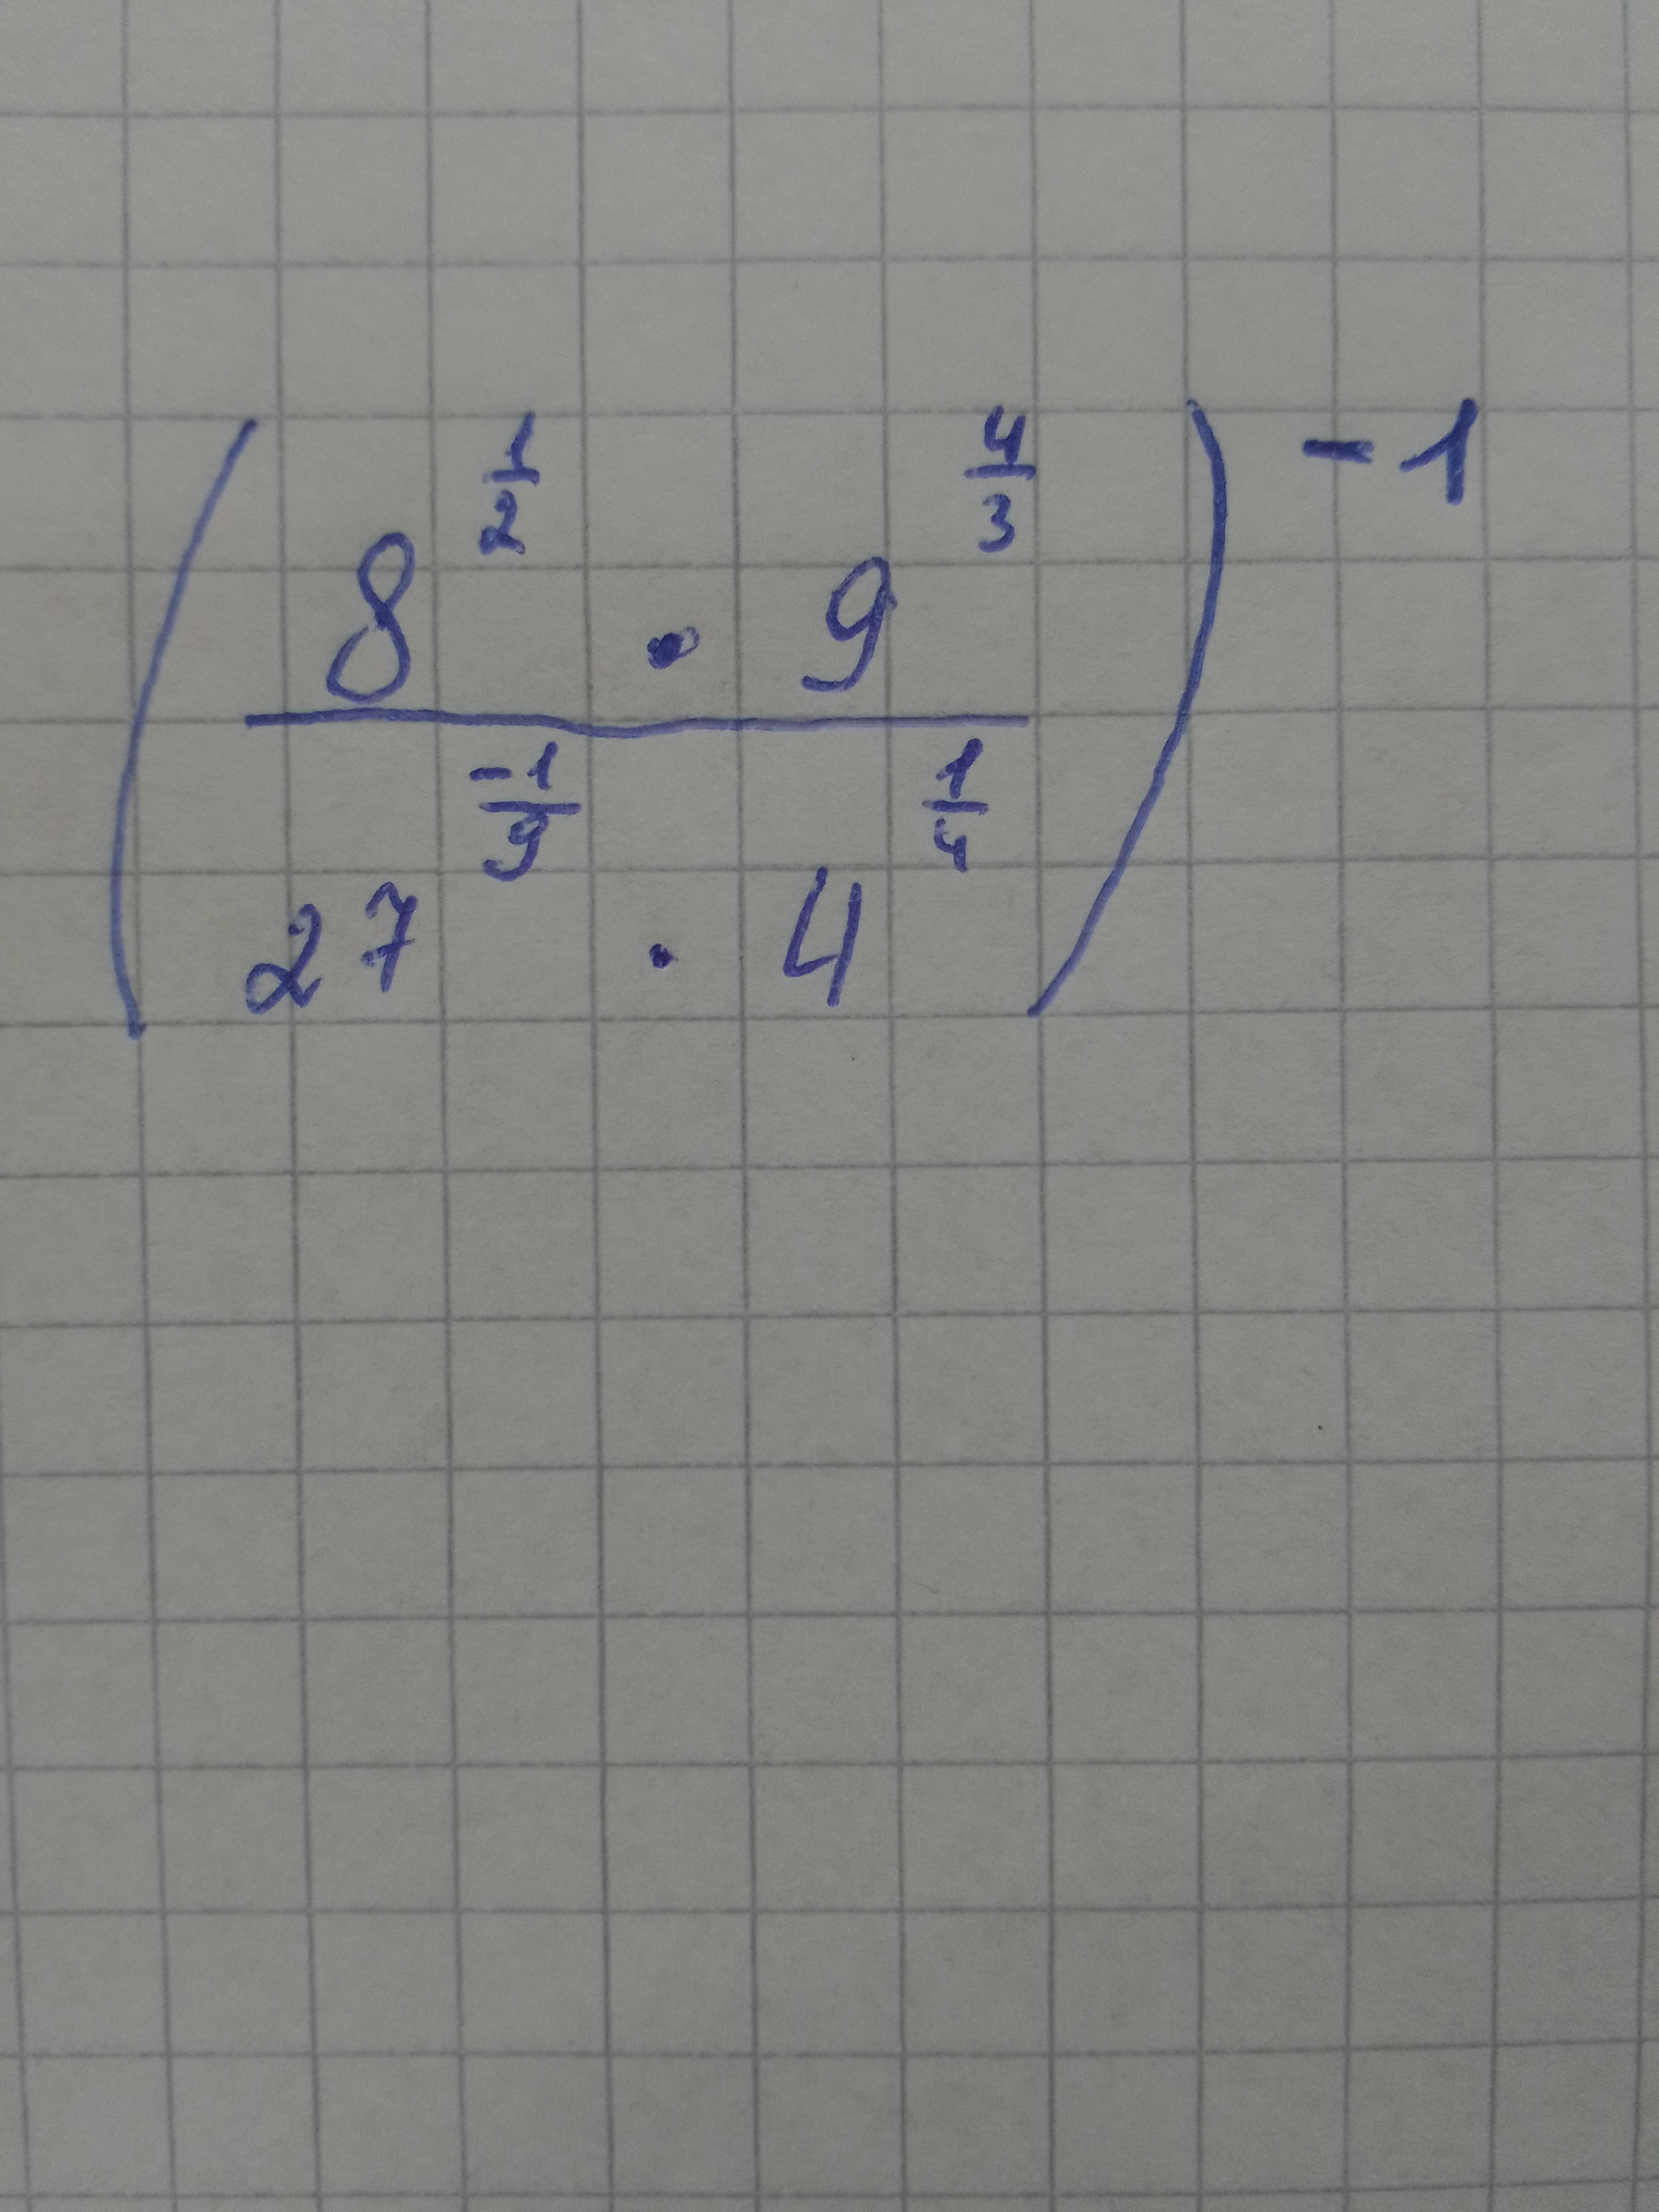 $\left(\frac{8^{\frac{1}{2}} \cdot 9^{\frac{4}{3}}}{27^{\frac{-1}{9}} \cdot 4^{\frac{1}{4}}}\right)^{-1}$